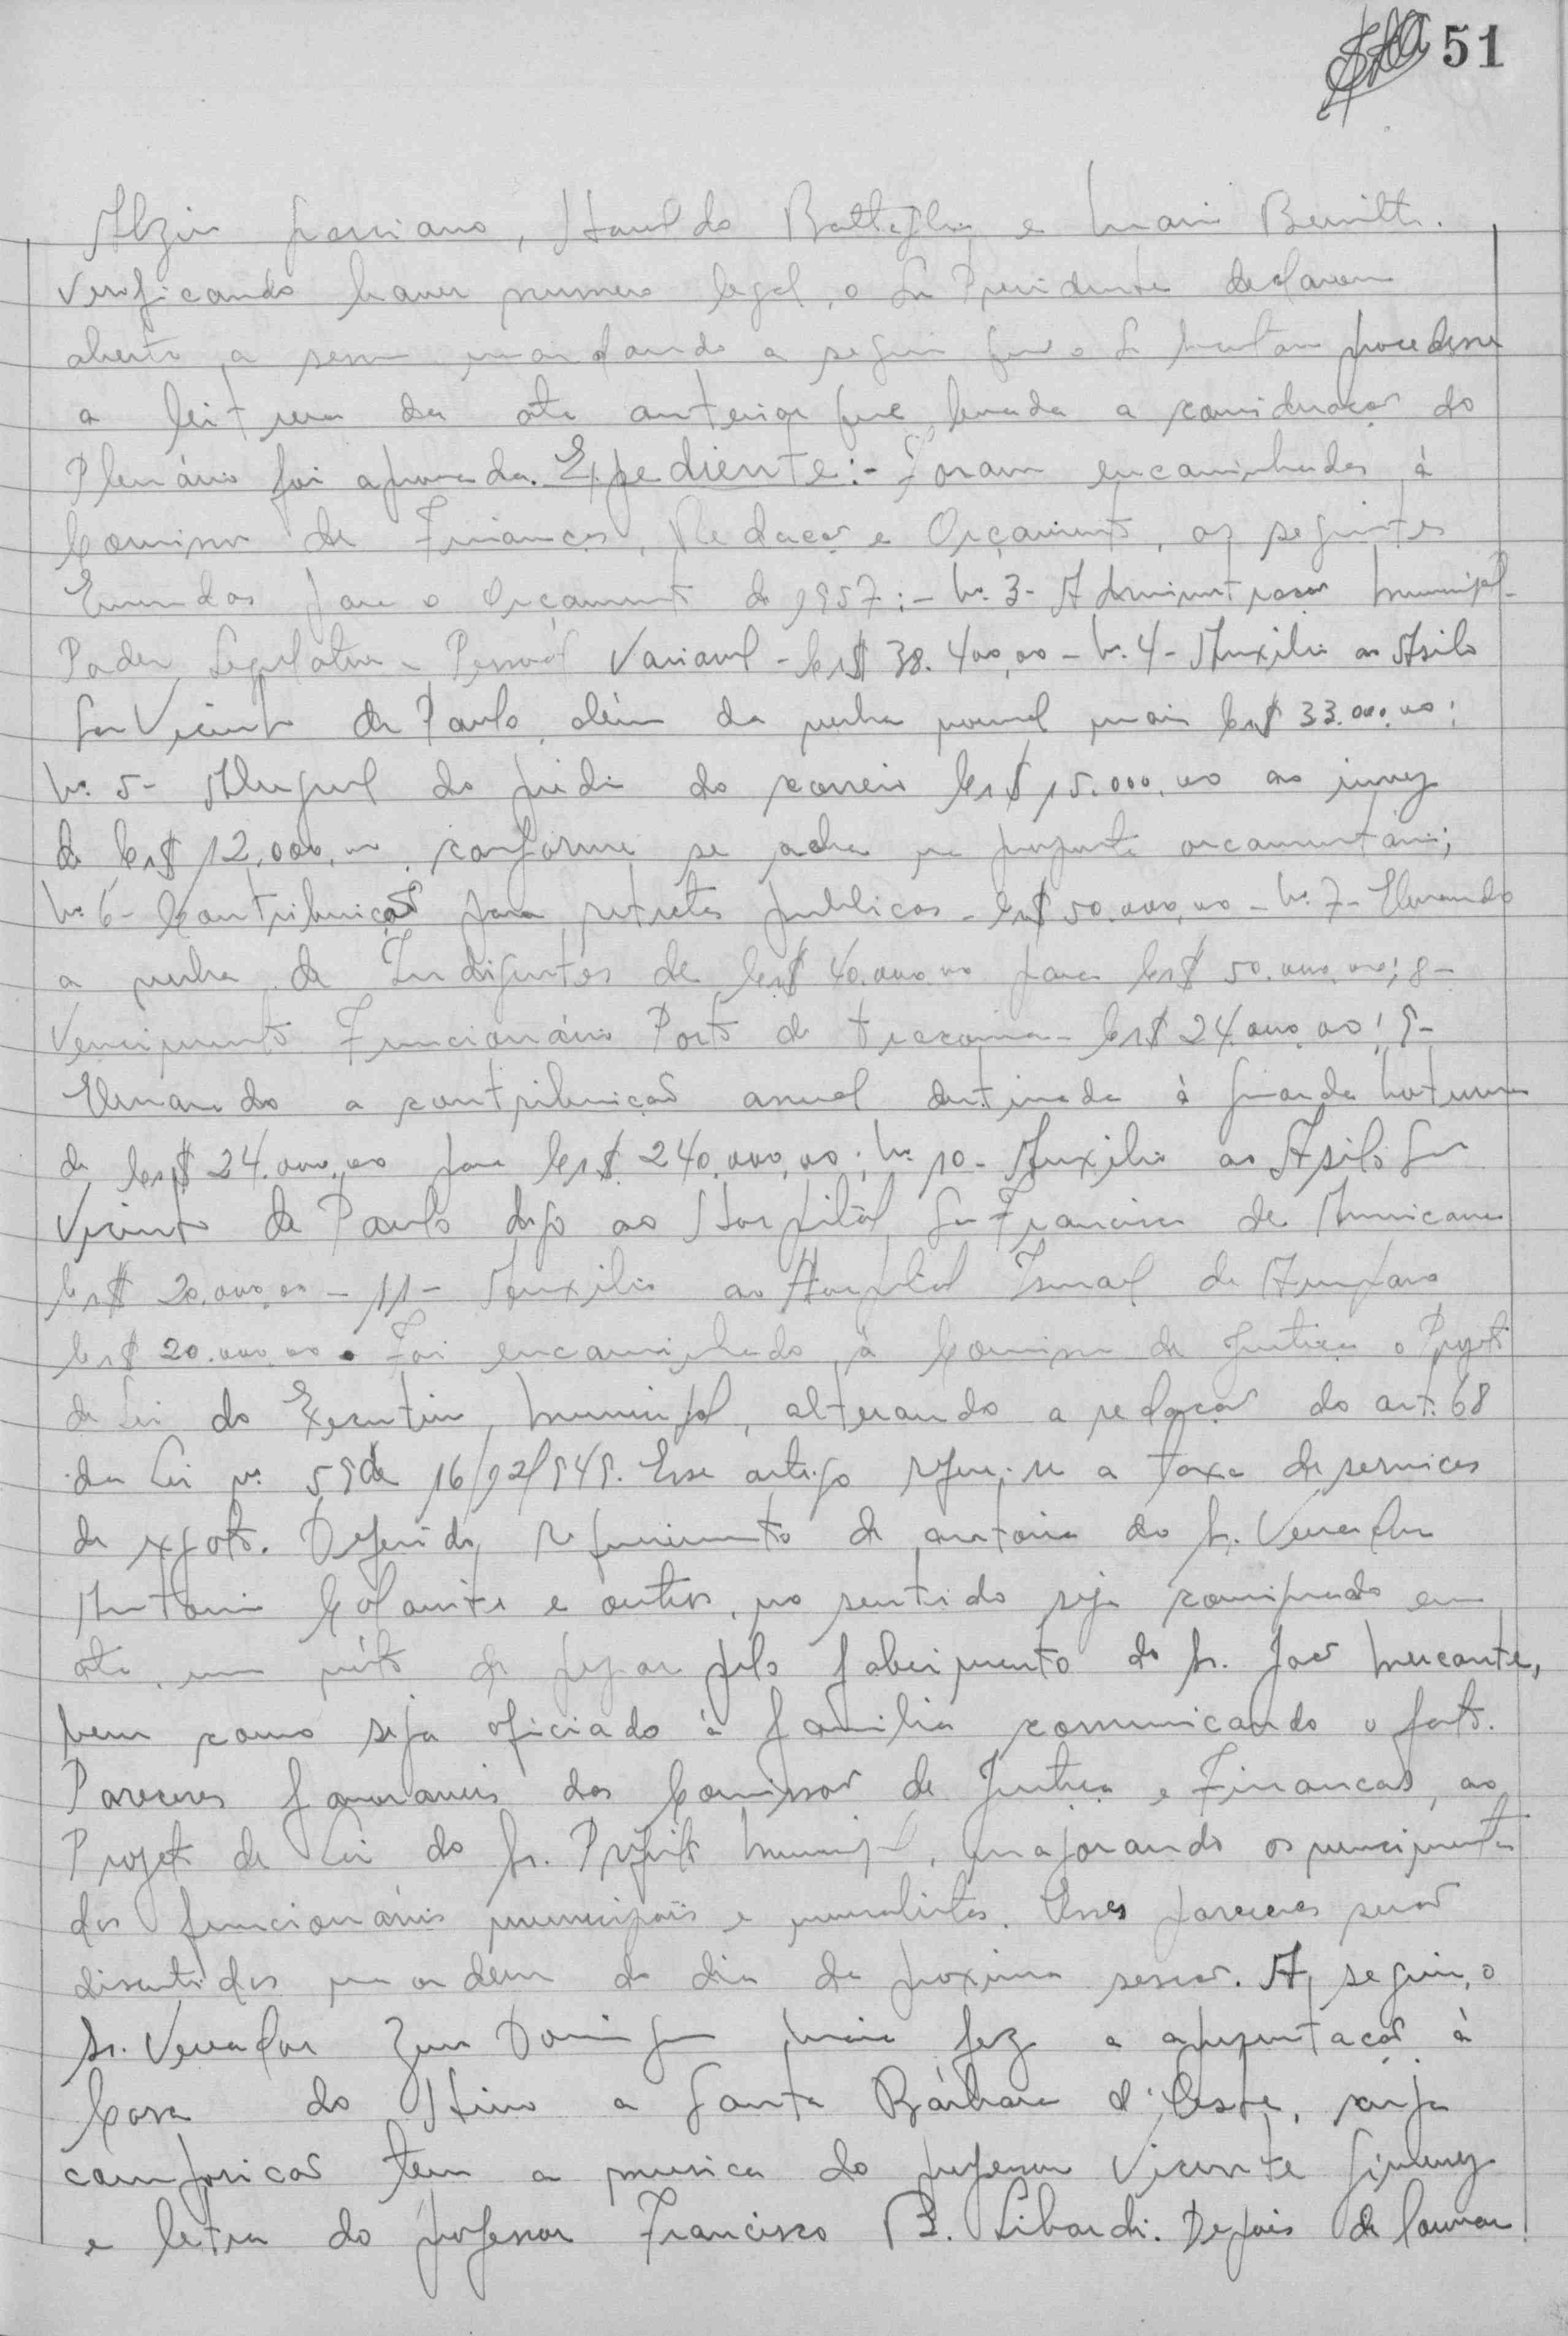 51
Alzir Graciano, Haroldo Battaglia e Mario Benitti.
Verificando haver numero legal, o Sr Presidente declarou
aberto a sessão mandando a seguir que o Sr Secretario procedesse
a leitura da ata anterior que levada a consideração do
Plenário foi aprovada. Expediente:- Foram encaminhadas à
Comissão de Finanças, Redação e Orçamento, as seguintes
Emendas para o Orçamento de 1957:- Nº 3- Administração Municipal-
Poder Legislativo - Pessoal Variavel - Cr$ 38.400,00 - Nº 4- Auxilio ao Asilo
São Vicente de Paulo, além da verba normal mais Cr$ 33.000,00;
Nº 5- Aluguel do prédio do correio Cr$ 15.000,00 ao invez
de Cr$ 12.000,00, conforme se acha na proposta orçamentária;
Nº 6- Contribuição para retretes publicos - Cr$ 50.000,00 - Nº 7- Elevando
a verba de Indigentes de Cr$ 40.000,00 para Cr$ 50.000,00; 8-
Vencimento Funcionário Posto de tracoma - Cr$ 24.000,00; 9-
Elevando a contribuição anual destinada à Guarda Noturna
de Cr$ 24.000,00 para Cr$ 240.000,00; Nº 10- Auxilio ao Asilo São
Vicente de Paulo digo ao Hospital São Francisco de Americana
Cr$ 20.000,00 - 11- Auxilio ao Hospital Ismael de Amparo
Cr$ 20.000,00. Foi encaminhado à Comissão de Justiça o Projeto
de Lei do Executivo Municipal, alterando a redação do art. 68
da Lei nº 59 de 16/12/949. Esse artigo refere-se a taxa de serviços
de exgoto. Deferido requerimento de autoria do Sr. Vereador
Antonio e outros, no sentido seja consignado em
ata, um voto de pezar pelo falecimento do Sr. João Mercante,
bem como seja oficiado à familia comunicando o fato.
Pareceres favoraveis das Comissões de Justiça e Finanças, ao
Projeto de Lei do Sr. Prefeito Municipal, majorando os vencimentos
dos funcionários municipais e mensalistas. Esses pareceres serão
discutidos na ordem do dia da proxima sessão. A seguir, o
Sr. Vereador Domingues Maia fez a apresentação à
Casa do Hino a Santa Bárbara d'Oeste, cuja
composicão tem a musica do professor Vicente Gimenez
e letra do professor Francisco B. Libardi. Depois de louvar